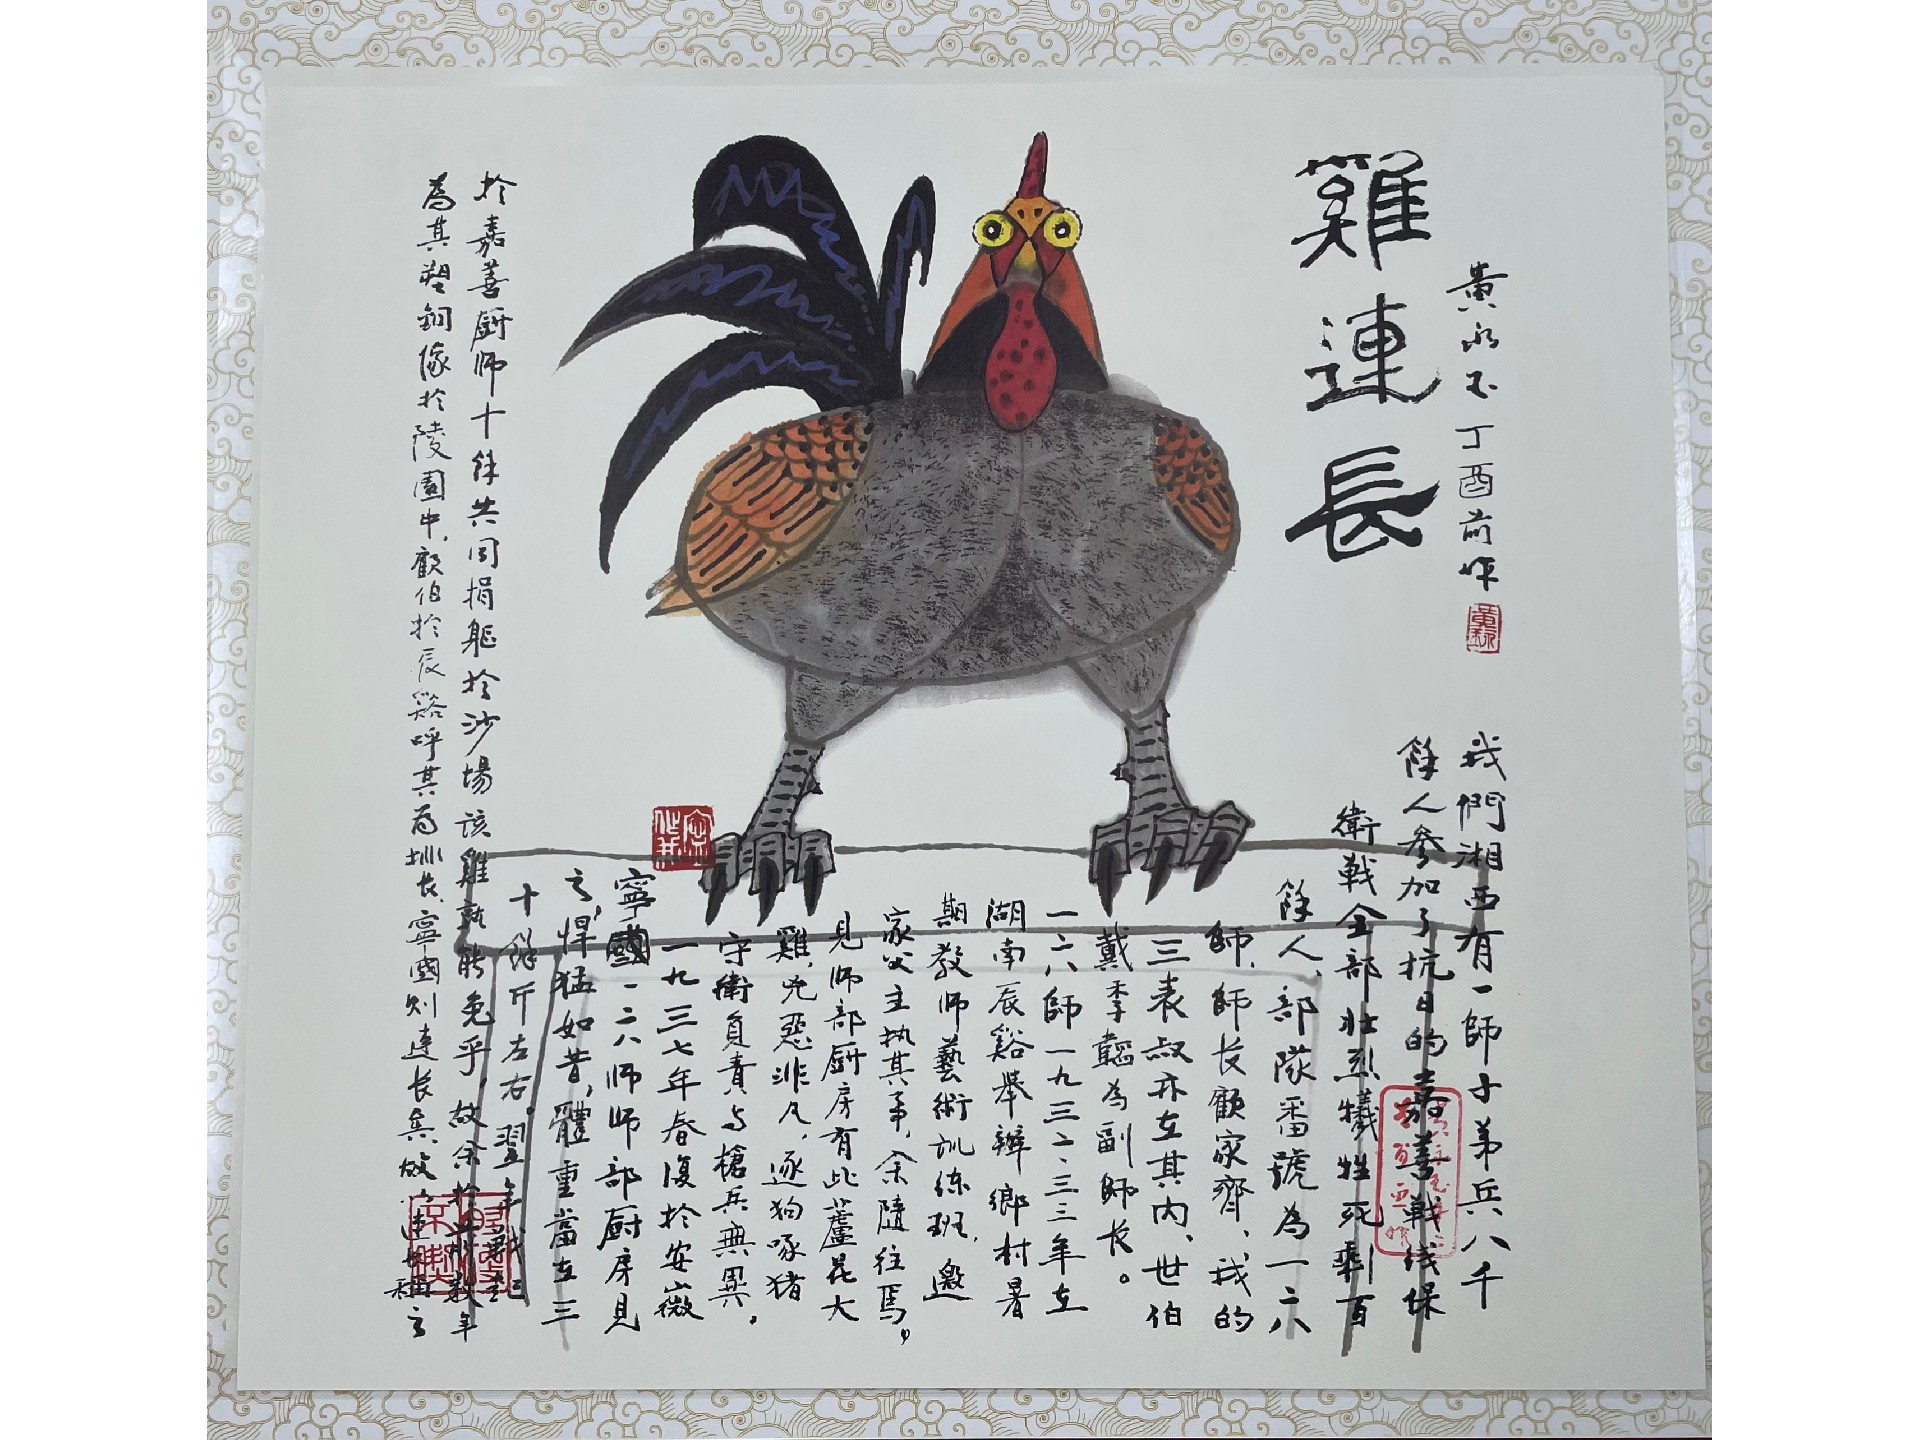 雞連長
黄永玉丁酉前作
我們湘西有一師子弟兵八千
餘人参加了抗日的嘉善戰线保
衛戰全部壮烈犧牲死剩百
餘人、部隊番號為一二八
師、師长顧家齊、我的
三表叔亦在其内、世伯
戴季韜為副師长。
一二八師一九三二、三三年在
湖南辰谿舉辦鄉村暑
期教师藝術訓练班，邀
家父主执其事，余隨往焉，
見师部厨房有此蘆花大
雞，兇惡非凡，逐狗啄猪
守衛負責与槍兵無異，
一九三七年春復於安徽
寧國一二八师师部厨房見
之，悍猛如昔，體重當在三
十餘斤左右。翌年戰起
於嘉善厨师十餘共同捐躯於沙場该雞孰能免乎，故余於
為其塑銅像於陵園中，顧伯於辰谿呼其為排长、寧國則連长矣，故以連长稱之